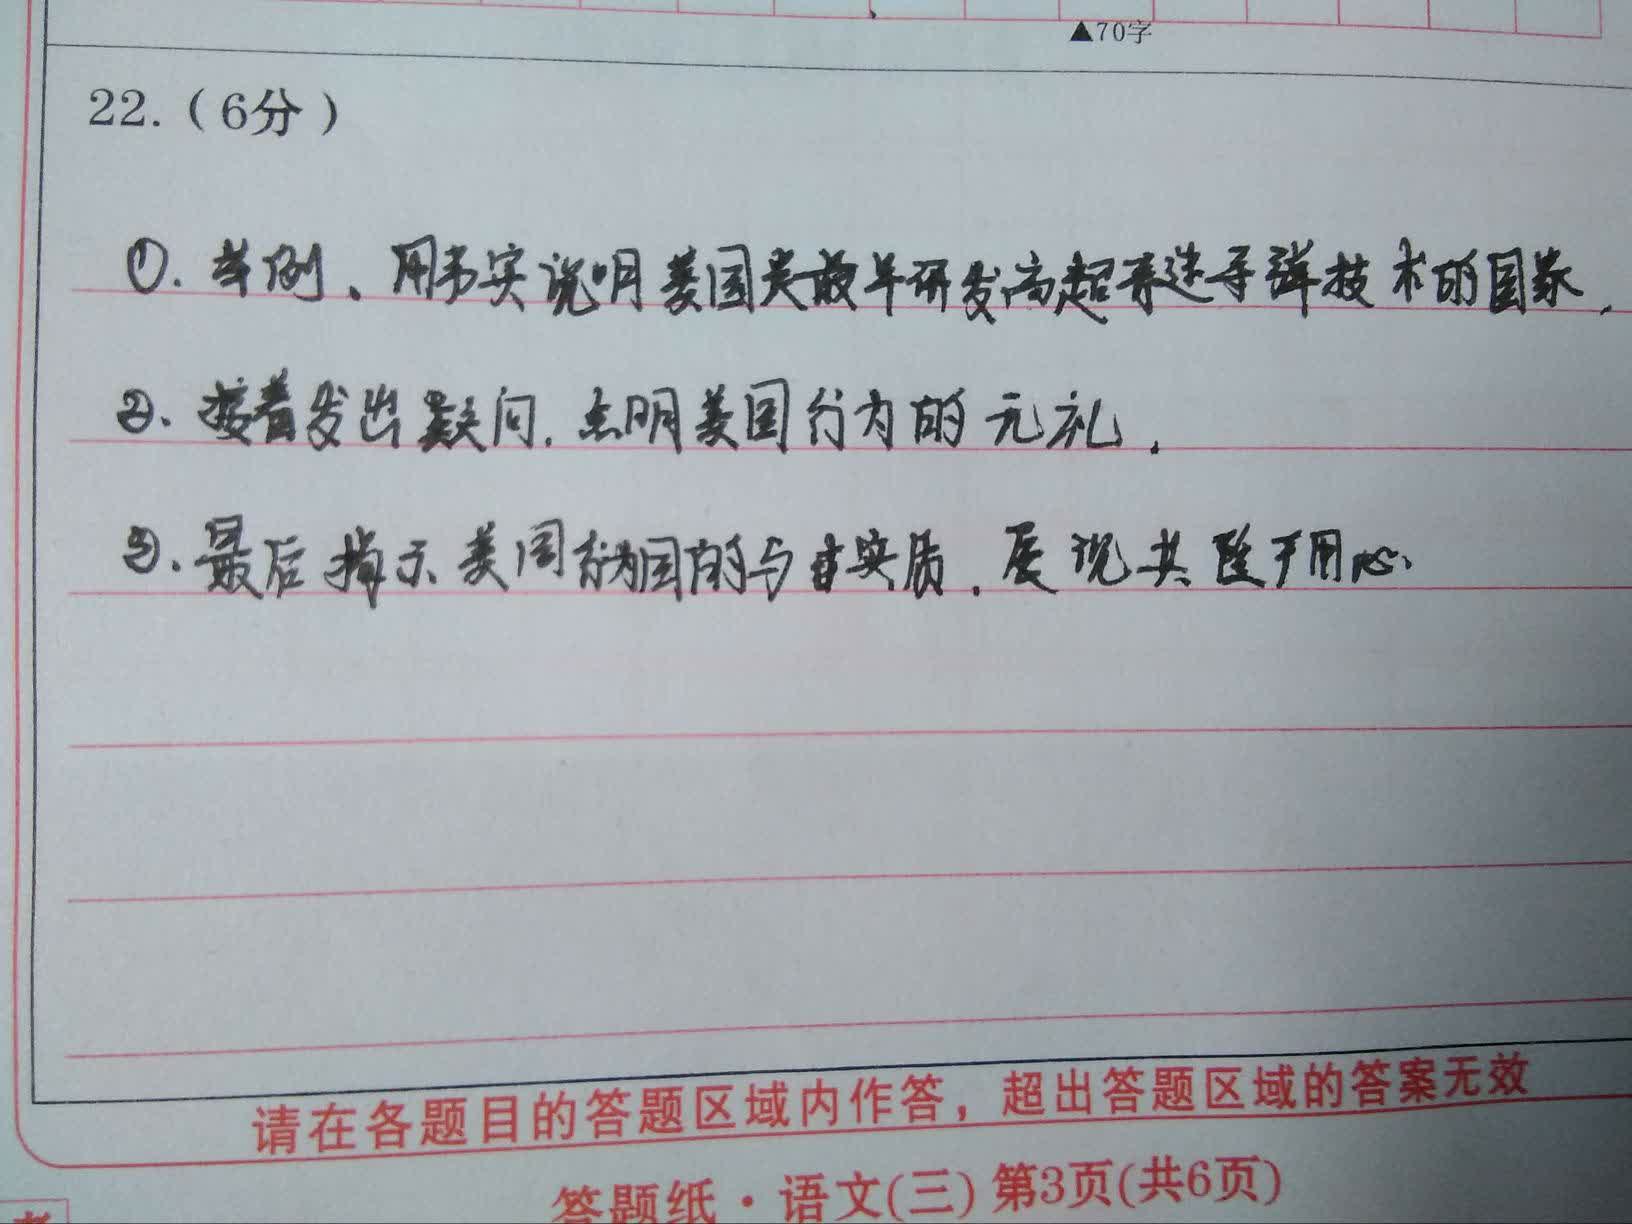 ▲70字
22.（6分）
①. 举例、用事实说明美国是最早研发高超音速导弹技术的国家.
②. 接着发出疑问. 点明美国行为的无礼.
③. 最后揭示美国行为目的与实质. 展现其险恶用心.
请在各题目的答题区域内作答，超出答题区域的答案无效
答题纸·语文(三) 第3页(共6页)